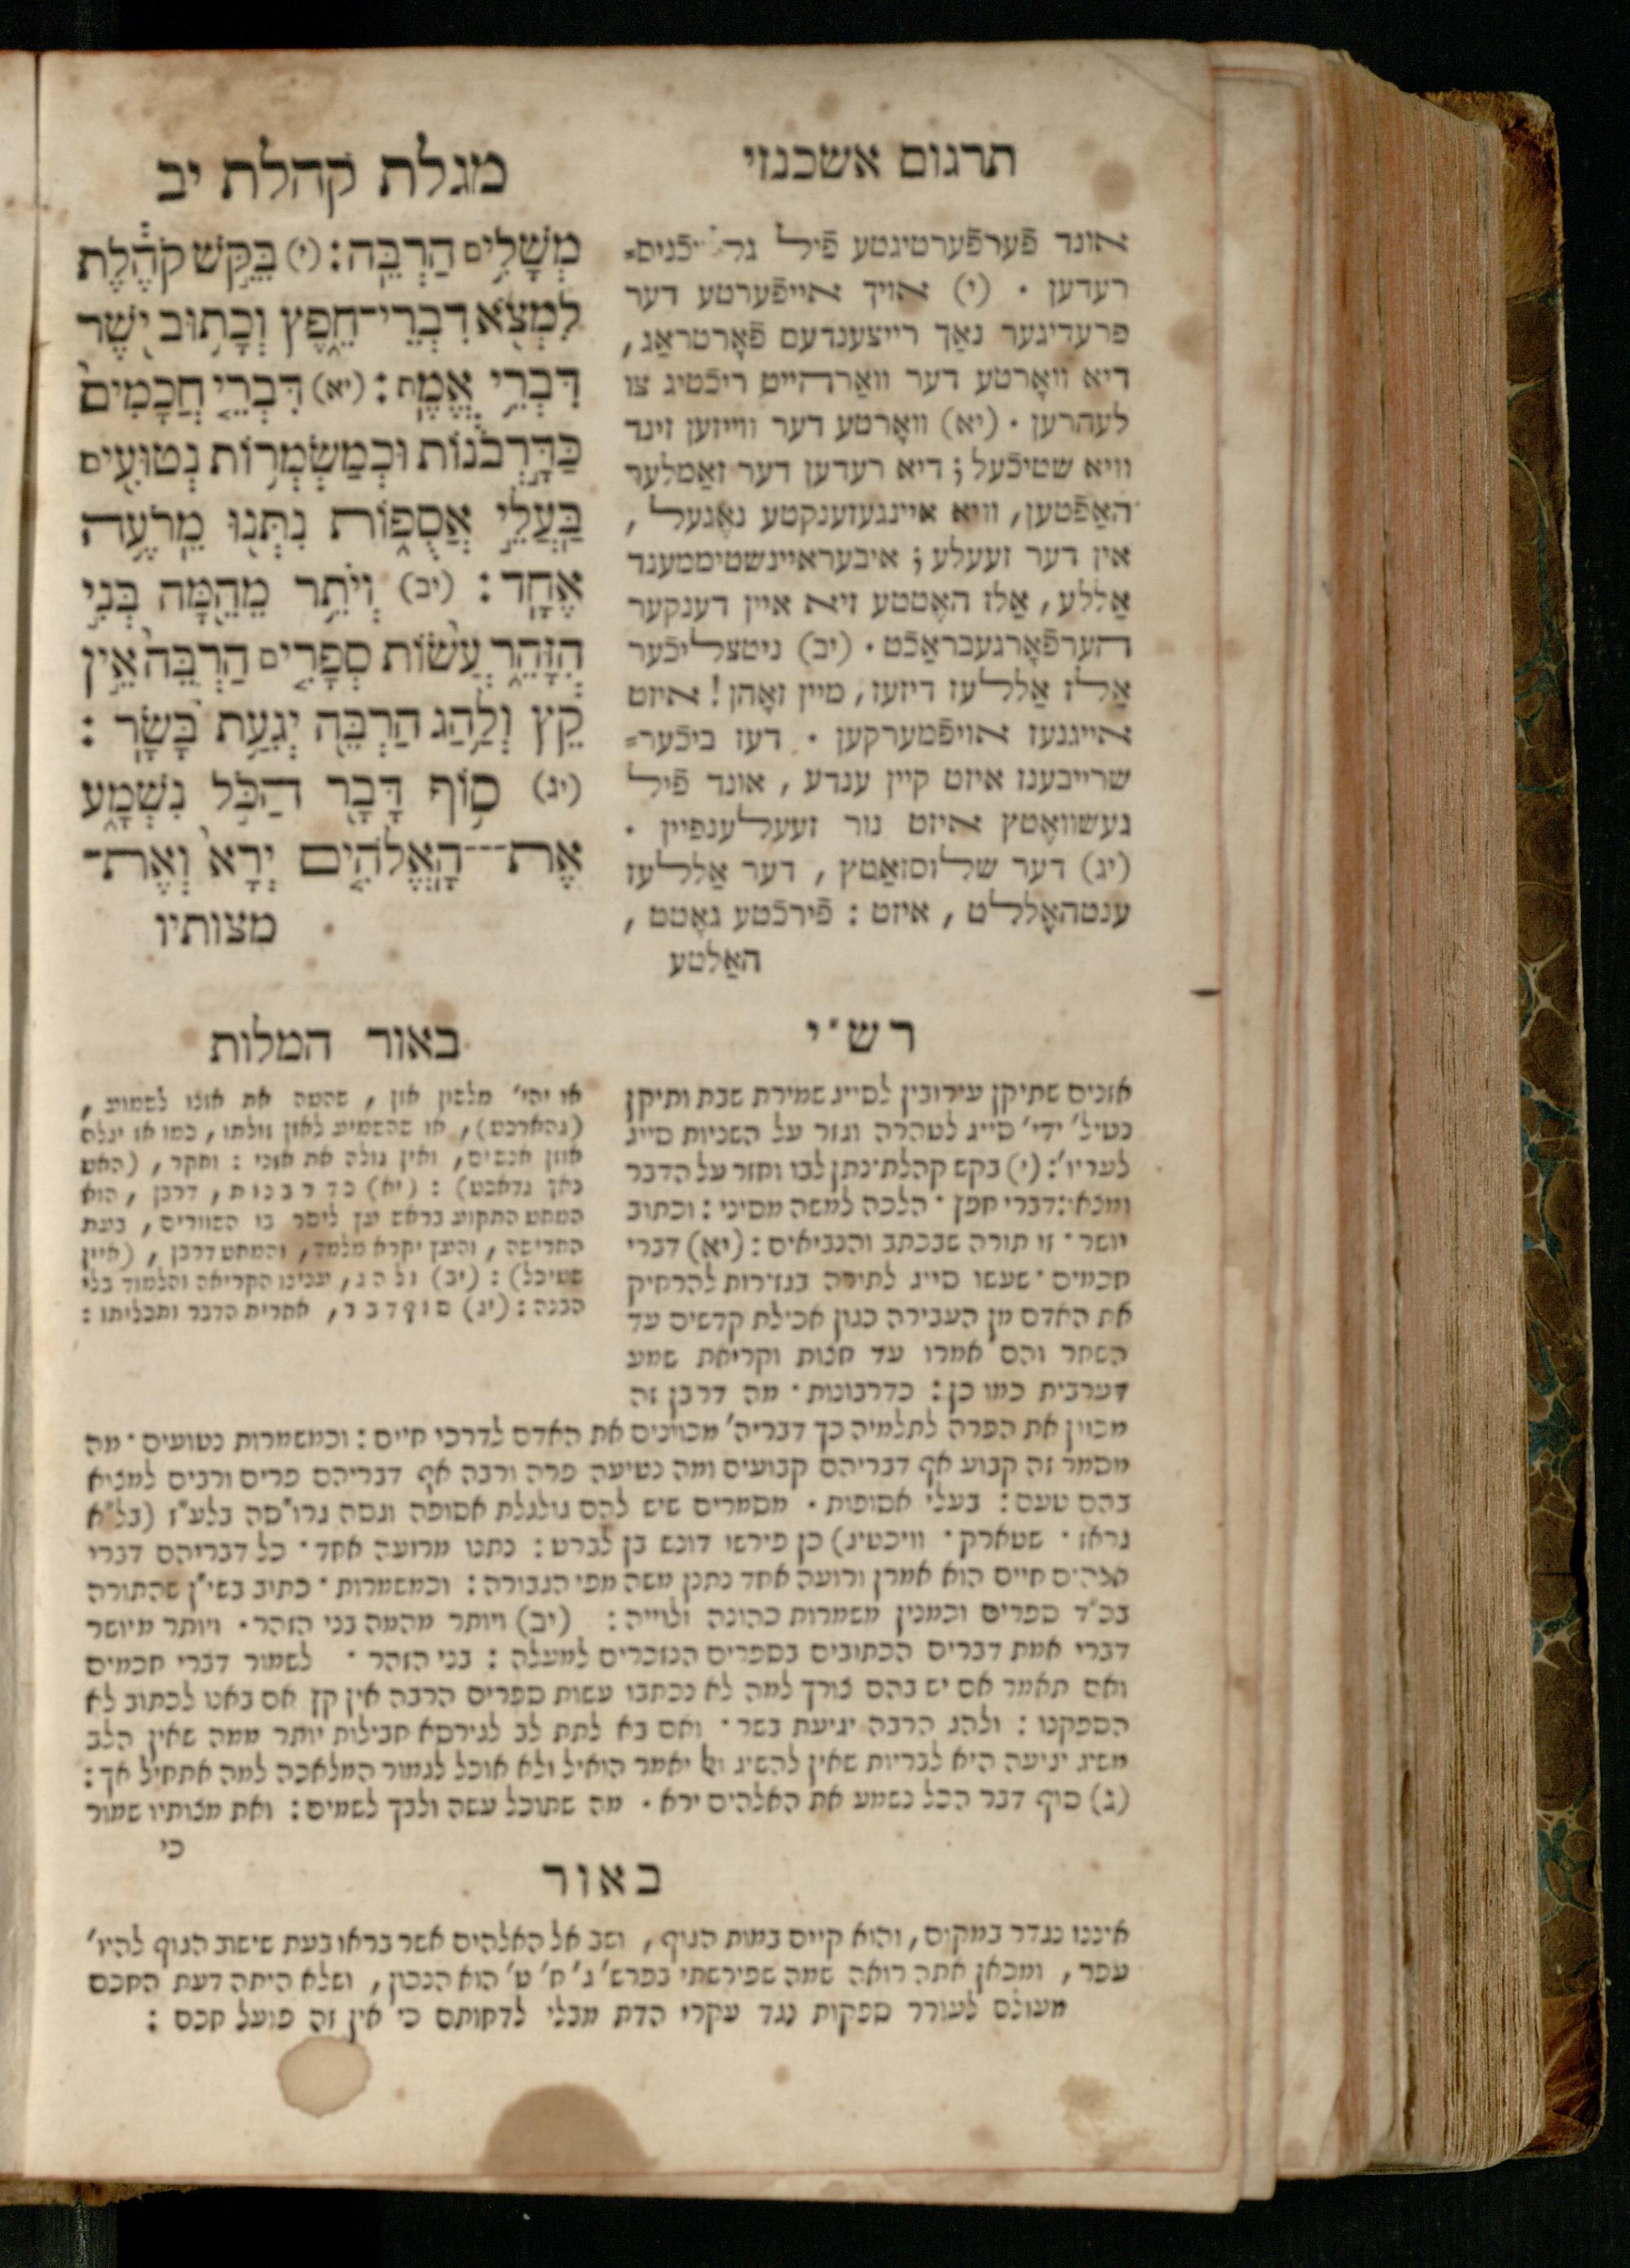 תרגום אשכנזי
מגלת קהלת יב
אונד פֿערפֿערטיגטע פֿיל
רעדען . (י) אויך אייפֿערטע דער
פרעדיגער נאַך רייצענדעם פֿאָרטראַג,
דיא וואָרטע דער וואַרהייט ריכֿטיג צו
לעהרען . (יא) וואָרטע דער ווייזען זינד
וויא שטיכֿעל; דיא רעדען דער זאַמלער
האַפֿטען, וויא איינגעזענקטע נאָגעל,
אין דער זעעלע; איבעראיינשטיממענד
אַללע, אַלז האָטטע זיא איין דענקער
הערפֿאָרגעבראַכֿט . (יב) ניטצליכֿער
אַלז אַללעז דיזעז, מיין זאָהן! איזט
אייגנעז אויפֿמערקען . דעז ביכֿער=
שרייבענז איזט קיין ענדע, אונד פֿיל
געשוואָטץ איזט נור זעעלענפיין .
(יג) דער שלוסזאַטץ, דער אַללעז
ענטהאָללט, איזט: פֿירכֿטע גאָטט,
האַלטע
מְשָׁלִים הַרְבֵּה: (י) בִּקֵּשׁ קֹהֶלֶת
לִמְצֹא דִבְרֵי־חֵפֶץ וְכָתוּב יֹשֶׁר
דִּבְרֵי אֱמֶת: (יא) דִּבְרֵי חֲכָמִים
כַּדָּרְבֹנוֹת וּכְמַשְׂמְרוֹת נְטוּעִים
בַּעֲלֵי אֲסֻפּוֹת נִתְּנוּ מֵרֹעֶה
אֶחָד: (יב) וְיֹתֵר מֵהֵמָּה בְּנִי
הִזָּהֵר עֲשׂוֹת סְפָרִים הַרְבֵּה אֵין
קֵץ וְלַהַג הַרְבֵּה יְגִעַת בָּשָׂר:
(יג) סוֹף דָּבָר הַכֹּל נִשְׁמָע
אֶת־הָאֱלֹהִים יְרָא וְאֶת־
מצותיו
רש״י
אזנים שתיקן עירובין לסייג שמירת שבת ותיקן
נטיל' ידי' סייג לטהרה וגזר על השניות סייג
לעריו': (י) בקש קהלת־נתן לבו וחזר על הדבר
ומצאו: דברי חפץ ־ הלכה למשה מסיני: וכתוב
יושר ־ זו תורה שבכתב והנביאים: (יא) דברי
חכמים ־ שעשו סייג לתורה בגזירות להרחיק
את האדם מן העבירה כגון אכילת קדשים עד
השחר והם אמרו עד חצות וקריאת שמע
דערבית כמו כן: כדרבונות ־ מה דרבן זה
מכוון את הפרה לתלמיה כך דבריה' מכוונים את האדם לדרכי חיים: וכמשמרות נטועים ־ מה
מסמר זה קבוע אף דבריהם קבועים ומה נטיעה פרה ורבה אף דבריהם פרים ורבים למצוא
בהם טעם: בעלי אסופות . מסמרים שיש להם גולגלת אסופה וגסה גרו״סה בלע״ז (בל״א
גראז ־ שטארק ־ וויכטיג) כן פירשו דונש בן לברט: נתנו מרועה אחד ־ כל דבריהם דברי
אלהים חיים הוא אמרן ורועה אחד נתנן משה מפי הגבורה: וכמשמרות ־ כתיב בשי״ן שהתורה
בכ״ד ספרים וכמנין משמרות כהונה ולוייה: (יב) ויותר מהמה בני הזהר . ויותר מיושר
דברי אמת דברים הכתובים בספרים הנזכרים למעלה: בני הזהר ־ לשמור דברי חכמים
ואם תאמר אם יש בהם צורך למה לא נכתבו עשות ספרים הרבה אין קץ אם באנו לכתוב לא
הספקנו: ולהג הרבה יגיעת בשר ־ ואם בא לתת לב לגירסא חבילות יותר ממה שאין הלב
משיג יגיעה היא לבריות שאין להשיג יאמר הואיל ולא אוכל לגמור המלאכה למה אתחיל אך:
(ג) סוף דבר הכל נשמע את האלהים ירא . מה שתוכל עשה ולבך לשמים: ואת מצותיו שמור
כי
באור המלות
או יהי' מלשון אזן, שהטה את אזנו לשמוע,
(געהארכט), או שהשמיע לאזן זולתו, כמו אז יגלה
אוזן אנשים, ואין גולה את אזני: וחקר, (האט
נאך געדאכט): (יא) כדרבנות, דרבן, הוא
המחט התקוע בראש עץ ליסר בו השוורים, בעת
החרישה, והעץ יקרא מלמד, והמחט דרבן, (איין
שטיכל): (יב) ולהג, ענינו הקריאה והלמוד בלי
הבנה: (יג) סוף דבר, אחרית הדבר ותכליתו:
באור
איננו נגדר במקום, והוא קיים במות הגוף, ושב אל האלהים אשר בראו בעת שישוב הגוף להיו'
עפר, ומכאן אתה רואה שמה שפירשתי בפרש' ג' ח' ט' הוא הנכון, ושלא היתה דעת החכם
מעולם לעורר ספקות נגד עקרי הדת מבלי לדחותם כי אין זה פועל חכם: